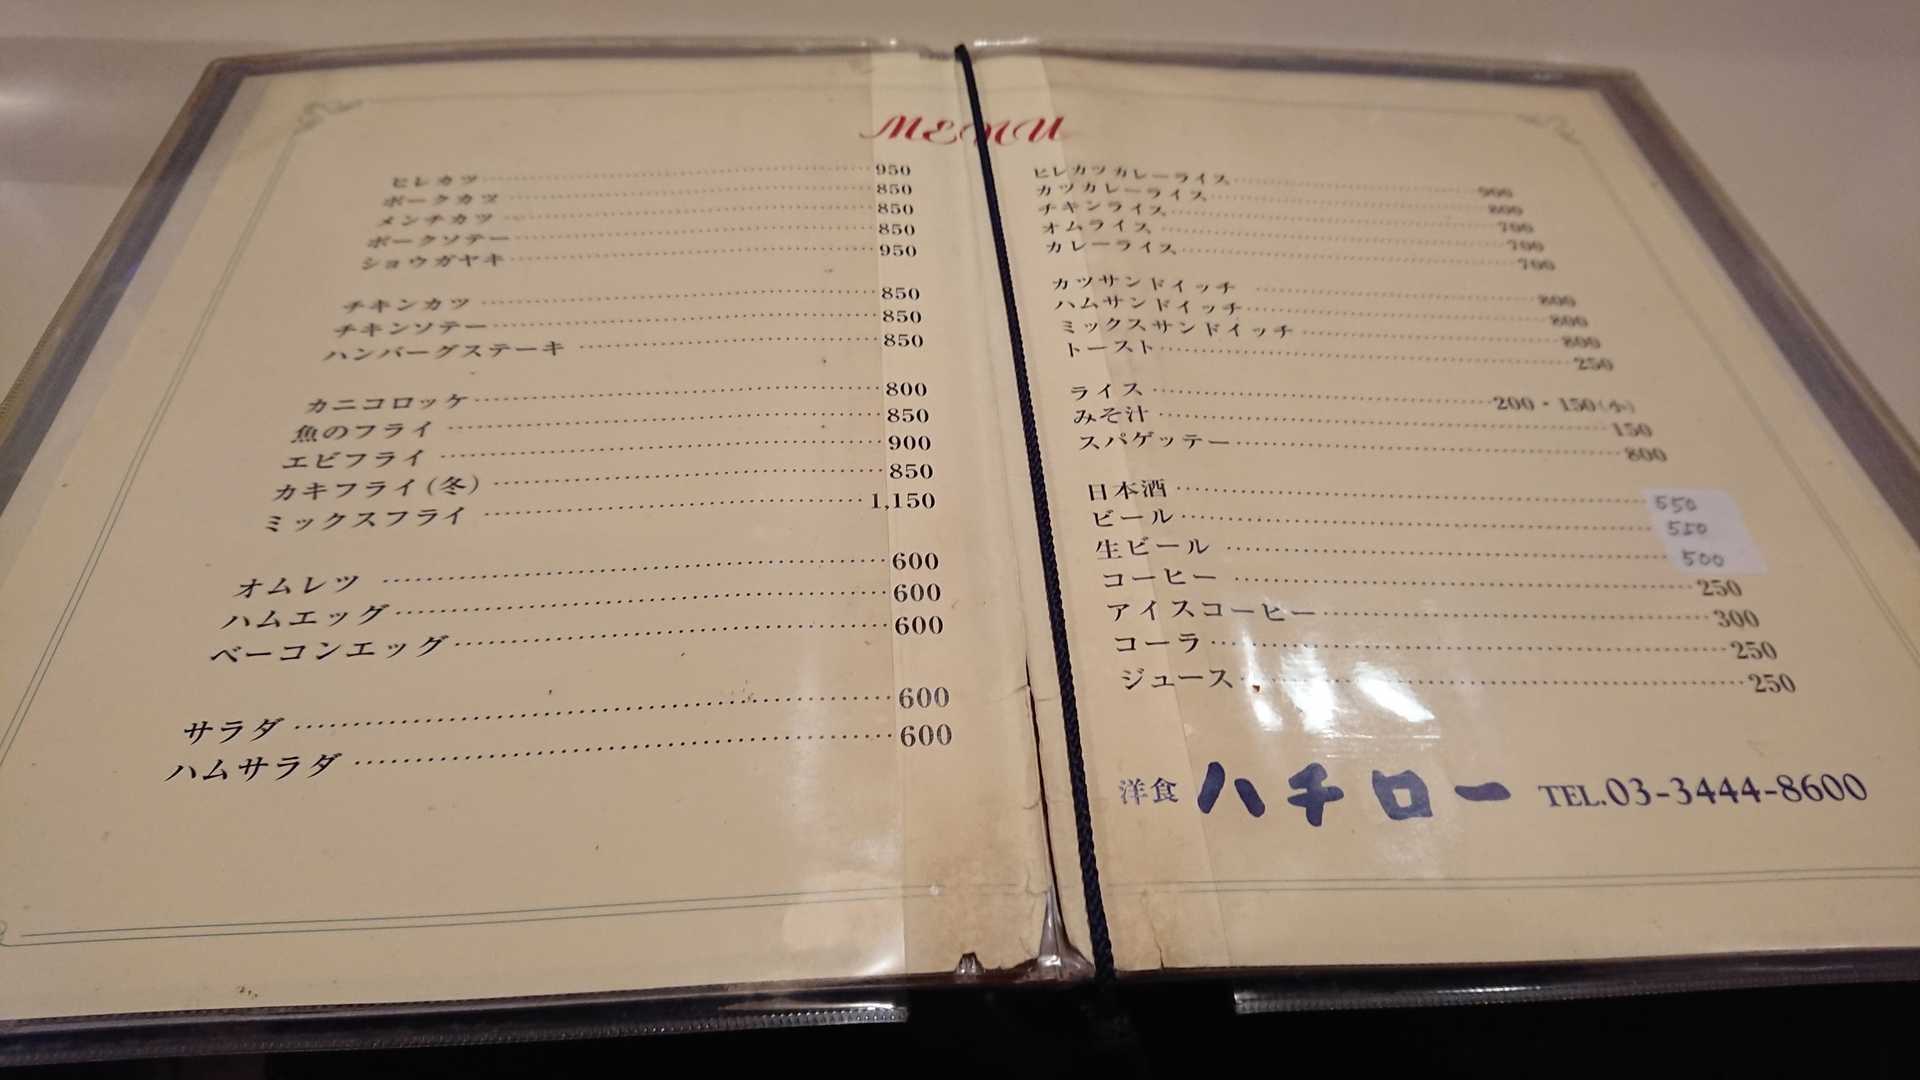 MENU
ヒレカツ 950
ポークカツ 850
メンチカツ 850
ポークソテー 850
ショウガヤキ 950
チキンカツ 850
チキンソテー 850
ハンバーグステーキ 850
カニコロッケ 800
魚のフライ 850
エビフライ 900
カキフライ(冬) 850
ミックスフライ 1,150
オムレツ 600
ハムエッグ 600
ベーコンエッグ 600
サラダ 600
ハムサラダ 600
ヒレカツカレーライス 900
カツカレーライス 800
チキンライス 700
オムライス 700
カレーライス 700
カツサンドイッチ 800
ハムサンドイッチ 800
ミックスサンドイッチ 800
トースト 250
ライス 200・150(小)
みそ汁 150
スパゲッテー 800
日本酒 550
ビール 550
生ビール 500
コーヒー 250
アイスコーヒー 300
コーラ 250
ジュース 250
洋食 ハチロー TEL.03-3444-8600